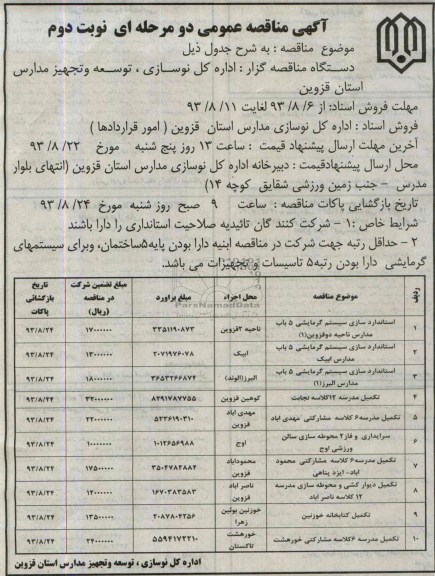 آگهی مناقصه عمومی دو مرحله ای نوبت دوم
موضوع مناقصه : به شرح جدول ذیل
دستگاه مناقصه گزار : اداره کل نوسازی ، توسعه وتجهیز مدارس
استان قزوین
مهلت فروش اسناد: از ۹۳/۸/۶ لغایت ۹۳/۸/۱۱
فروش اسناد : اداره کل نوسازی مدارس استان قزوین ( امور قراردادها )
آخرین مهلت ارسال پیشنهاد قیمت : ساعت ۱۳ روز پنج شنبه مورخ ۹۳/۸/۲۲
محل ارسال پیشنهادقیمت : دبیرخانه اداره کل نوسازی مدارس استان قزوین (انتهای بلوار
مدرس - جنب زمین ورزشی شقایق کوچه ۱۴)
تاریخ بازگشایی پاکات مناقصه : ساعت ۹ صبح روز شنبه مورخ ۹۳/۸/۲۴
شرایط خاص :۱ - شرکت کنند گان تائیدیه صلاحیت استانداری را دارا باشند
۲ - حداقل رتبه جهت شرکت در مناقصه ابنیه دارا بودن پایه۵ساختمان، وبرای سیستمهای
گرمایشی دارا بودن رتبه۵ تاسیسات و تجهیزات می باشد.
ردیف موضوع مناقصه محل اجراء مبلغ برآورد مبلغ تضمین شرکت در مناقصه (ریال) تاریخ بازگشائی پاکات
۱ استاندارد سازی سیستم گرمایشی ۵ باب مدارس ناحیه دوقزوین(۱) ناحیه ۲قزوین ۳۳۵۱۱۹۰۸۷۳ ۱۷۰۰۰۰۰۰ ۹۳/۸/۲۴
۲ استاندارد سازی سیستم گرمایشی ۵ باب مدارس ابیک ابیک ۲۰۷۱۹۷۶۰۷۸ ۱۳۰۰۰۰۰۰ ۹۳/۸/۲۴
۳ استاندارد سازی سیستم گرمایشی ۵ باب مدارس البرز(۱) البرز(الوند) ۳۶۵۳۲۶۶۸۷۴ ۱۸۰۰۰۰۰۰ ۹۳/۸/۲۴
۴ تکمیل مدرسه ۱۲کلاسه نجابت کوهین قزوین ۸۲۹۱۷۸۷۷۵۵ ۳۲۰۰۰۰۰۰ ۹۳/۸/۲۴
۵ تکمیل مدرسه۶ کلاسه مشارکتی مهدی اباد مهدی اباد قزوین ۵۲۳۶۱۹۰۳۱۰ ۲۳۰۰۰۰۰۰ ۹۳/۸/۲۴
۶ سرایداری و فاز۲ محوطه سازی سالن ورزشی اوج اوج ۱۰۱۳۶۵۶۹۸۸ ۱۰۰۰۰۰۰۰ ۹۳/۸/۲۴
۷ تکمیل مدرسه۶ کلاسه مشارکتی محمود اباد- ایزد پناهی محموداباد قزوین ۳۵۰۴۷۸۲۸۸۴ ۱۷۵۰۰۰۰۰ ۹۳/۸/۲۴
۸ تکمیل دیوار کشی و محوطه سازی مدرسه ۱۲ کلاسه ناصر اباد ناصر اباد قزوین ۱۶۷۰۳۸۳۵۸۳ ۱۲۰۰۰۰۰۰ ۹۳/۸/۲۴
۹ تکمیل کتابخانه خوزنین خوزنین بوئین زهرا ۲۰۸۷۸۰۴۲۵۶ ۱۳۵۰۰۰۰۰ ۹۳/۸/۲۴
۱۰ تکمیل مدرسه ۶کلاسه مشارکتی خورهشت خورهشت تاکستان ۵۵۹۴۱۷۲۲۱۰ ۲۴۰۰۰۰۰۰ ۹۳/۸/۲۴
اداره کل نوسازی ، توسعه وتجهیز مدارس استان قزوین
ParsNamadData